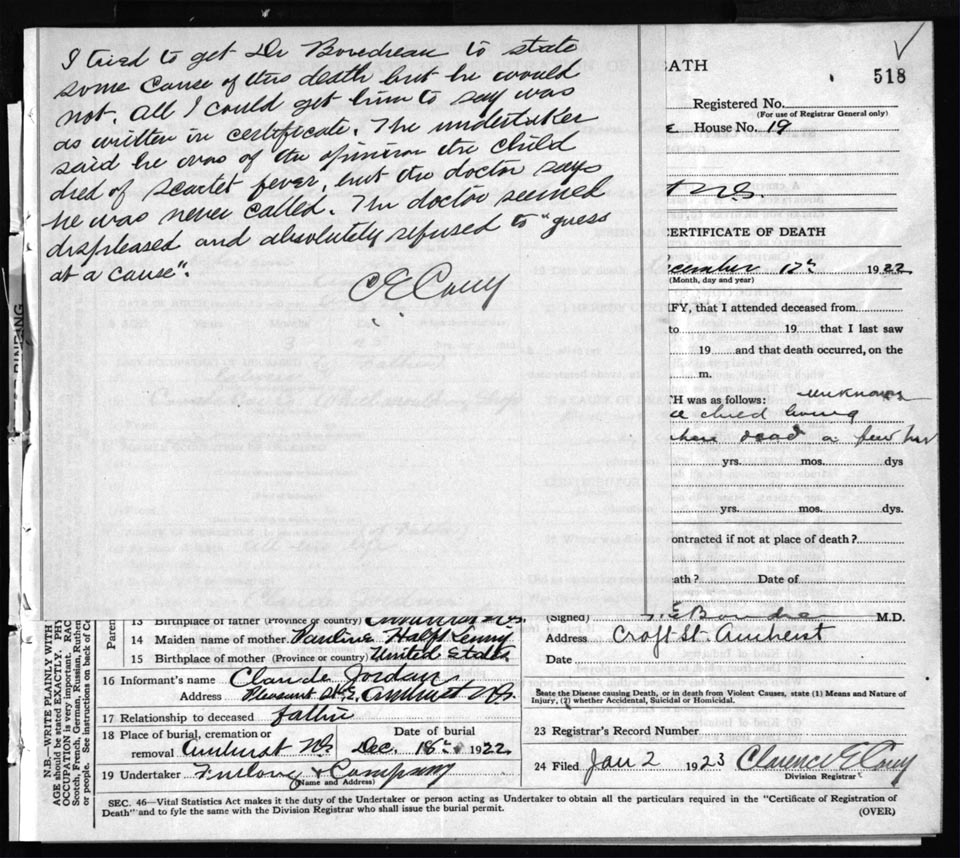 I tried to get Dr Bouedreau to state
some cause of this death but he would
not. All I could get him to say was
as written in certificate. The undertaker
said he was of the opinion the child
died of Scarlet fever, but the doctor says
he was never called. The doctor seemed
displeased and absolutely refused to "guess
at a cause".
ATH
518
Registered No.
(For use of Registrar General only)
House No. 19
N.S.
CERTIFICATE OF DEATH
cember 12th 1922
(Month, day and year)
FY, that I attended deceased from
to 19 that I last saw
19 and that death occurred, on the
m.
H was as follows: unknown
child living
dead a few hrs
yrs. mos. dys
yrs. mos. dys.
ontracted if not at place of death?
ath? Date of
(Signed) M.D.
Address Croft St. Amherst
Date
State the Disease causing Death, or in death from Violent Causes, state (1) Means and Nature of
Injury, (2) whether Accidental, Suicidal or Homicidal.
23 Registrar's Record Number
24 Filed Jan 2 1923 Clarence E Casey
Division Registrar
N.B.—WRITE PLAINLY WITH
AGE should be stated EXACTLY. PHY
OCCUPATION is very important. RAC
Scotch, French, German, Russian, Ruthen
or people. See instructions on back of Ce
Paren
13 Birthplace of father (Province or country) Amherst N.S.
14 Maiden name of mother Pauline Halfkenny
15 Birthplace of mother (Province or country) United States
16 Informant's name Claude Jordan
Address Pleasant St E. Amherst N.S.
17 Relationship to deceased father
18 Place of burial, cremation or Date of burial
removal Amherst N.S. Dec. 18th 1922
19 Undertaker Furlong & Company
(Name and Address)
SEC. 46—Vital Statistics Act makes it the duty of the Undertaker or person acting as Undertaker to obtain all the particulars required in the "Certificate of Registration of
Death" and to fyle the same with the Division Registrar who shall issue the burial permit.
(OVER)